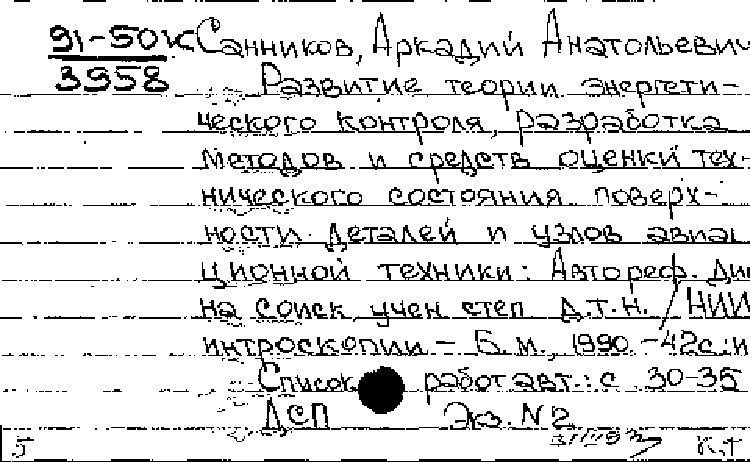 91-50к Санников, Аркадий Анатольевич
3958 Развитие теории энергети-
ческого контроля, разработка
методов и средств оценки тех-
нического состояния поверх-
ности деталей и узлов авиа
ционной техники: Автореф. Ди
на соиск. учен степ д.т.н. / НИИ
интроскопии - Б.м., 1990. - 42с.: и
Список работ авт.: с 30-35
ДСП Экз. №2
5